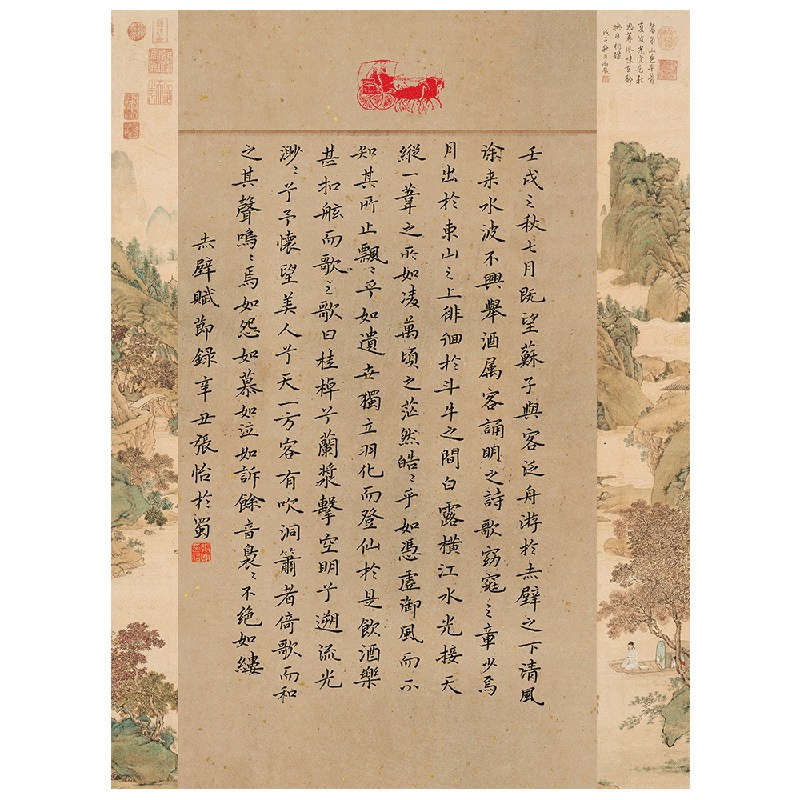 壬戌之秋七月既望蘇子與客泛舟游於赤壁之下清風
徐来水波不興舉酒属客誦明之詩歌窈窕之章少焉
月出於東山之上徘徊於斗牛之間白露橫江水光接天
縱一葦之所如凌萬頃之茫然皓〻乎如憑虛御風而不
知其所止飄〻乎如遺世獨立羽化而登仙於是飲酒樂
甚扣舷而歌之歌曰桂棹兮蘭漿擊空明兮遡流光
渺〻兮予懷望美人兮天一方客有吹洞簫者倚歌而和
之其聲嗚〻焉如怨如慕如泣如訴餘音裊〻不絕如縷
赤壁賦節錄辛丑張怡於蜀